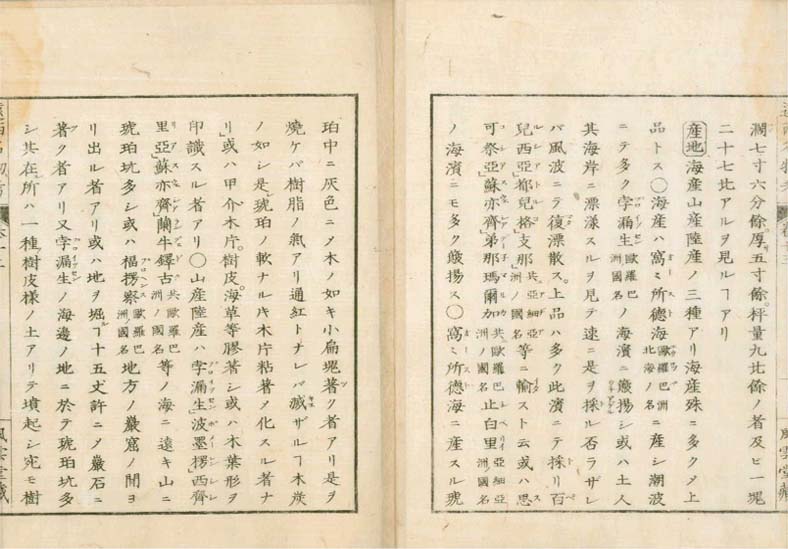 濶七寸六分餘厚五寸餘秤量九比餘ノ者及ヒ一塊
二十七比アルヲ見ルヿアリ
産地 海産山産陸産ノ三種アリ海産殊ニ多クメ上
品トス○海産ハ窩ミ所德海歐羅巴洲北海ノ名ニ産シ潮波
ニテ多ク孛漏生歐羅巴洲國名ノ海濱ニ簸揚シ或ハ土人
其海岸ニ漂漾スルヲ見テ速ニ是ヲ採ル否ラザレ
バ風波ニテ復漂散ス上品ハ多ク此濱ニテ採リ百
兒西亞都兒格支那共亞細亞洲ノ國名等ニ輸スト云或ハ思
可祭亞蘇亦齊弟那瑪爾加共歐羅巴洲ノ國名止白里亞細亞洲國名
ノ海濱ニモ多ク簸揚ス○窩ミ所德海ニ産スル琥
珀中ニ灰色ニメ木ノ如キ小扁塊著ク者アリ是ヲ
燒ケバ樹脂ノ氣アリ通紅トナレバ滅ザルヿ木炭
ノ如シ是琥珀ノ軟ナル片木片粘著メ化スル者ナ
リ或ハ甲介木片樹皮海草等膠著シ或ハ木葉形ヲ
印識スル者アリ○山産陸産ハ孛漏生波墨楞西齊
里亞蘇亦齊蘭牛鐸古共歐羅巴洲ノ國名等ノ海ニ遠キ山ニ
琥珀坑多シ或ハ楅楞察歐羅巴洲國名地方ノ巖窟ノ間ヨ
リ出ル者アリ或ハ地ヲ堀ルヿ十五丈許ニメ巖石ニ
著ク者アリ又孛漏生ノ海邊ノ地ニ於テ琥珀坑多
シ其在所ハ一種樹皮樣ノ土アリテ墳起シ宛モ樹
風雲堂藏
風雲堂藏